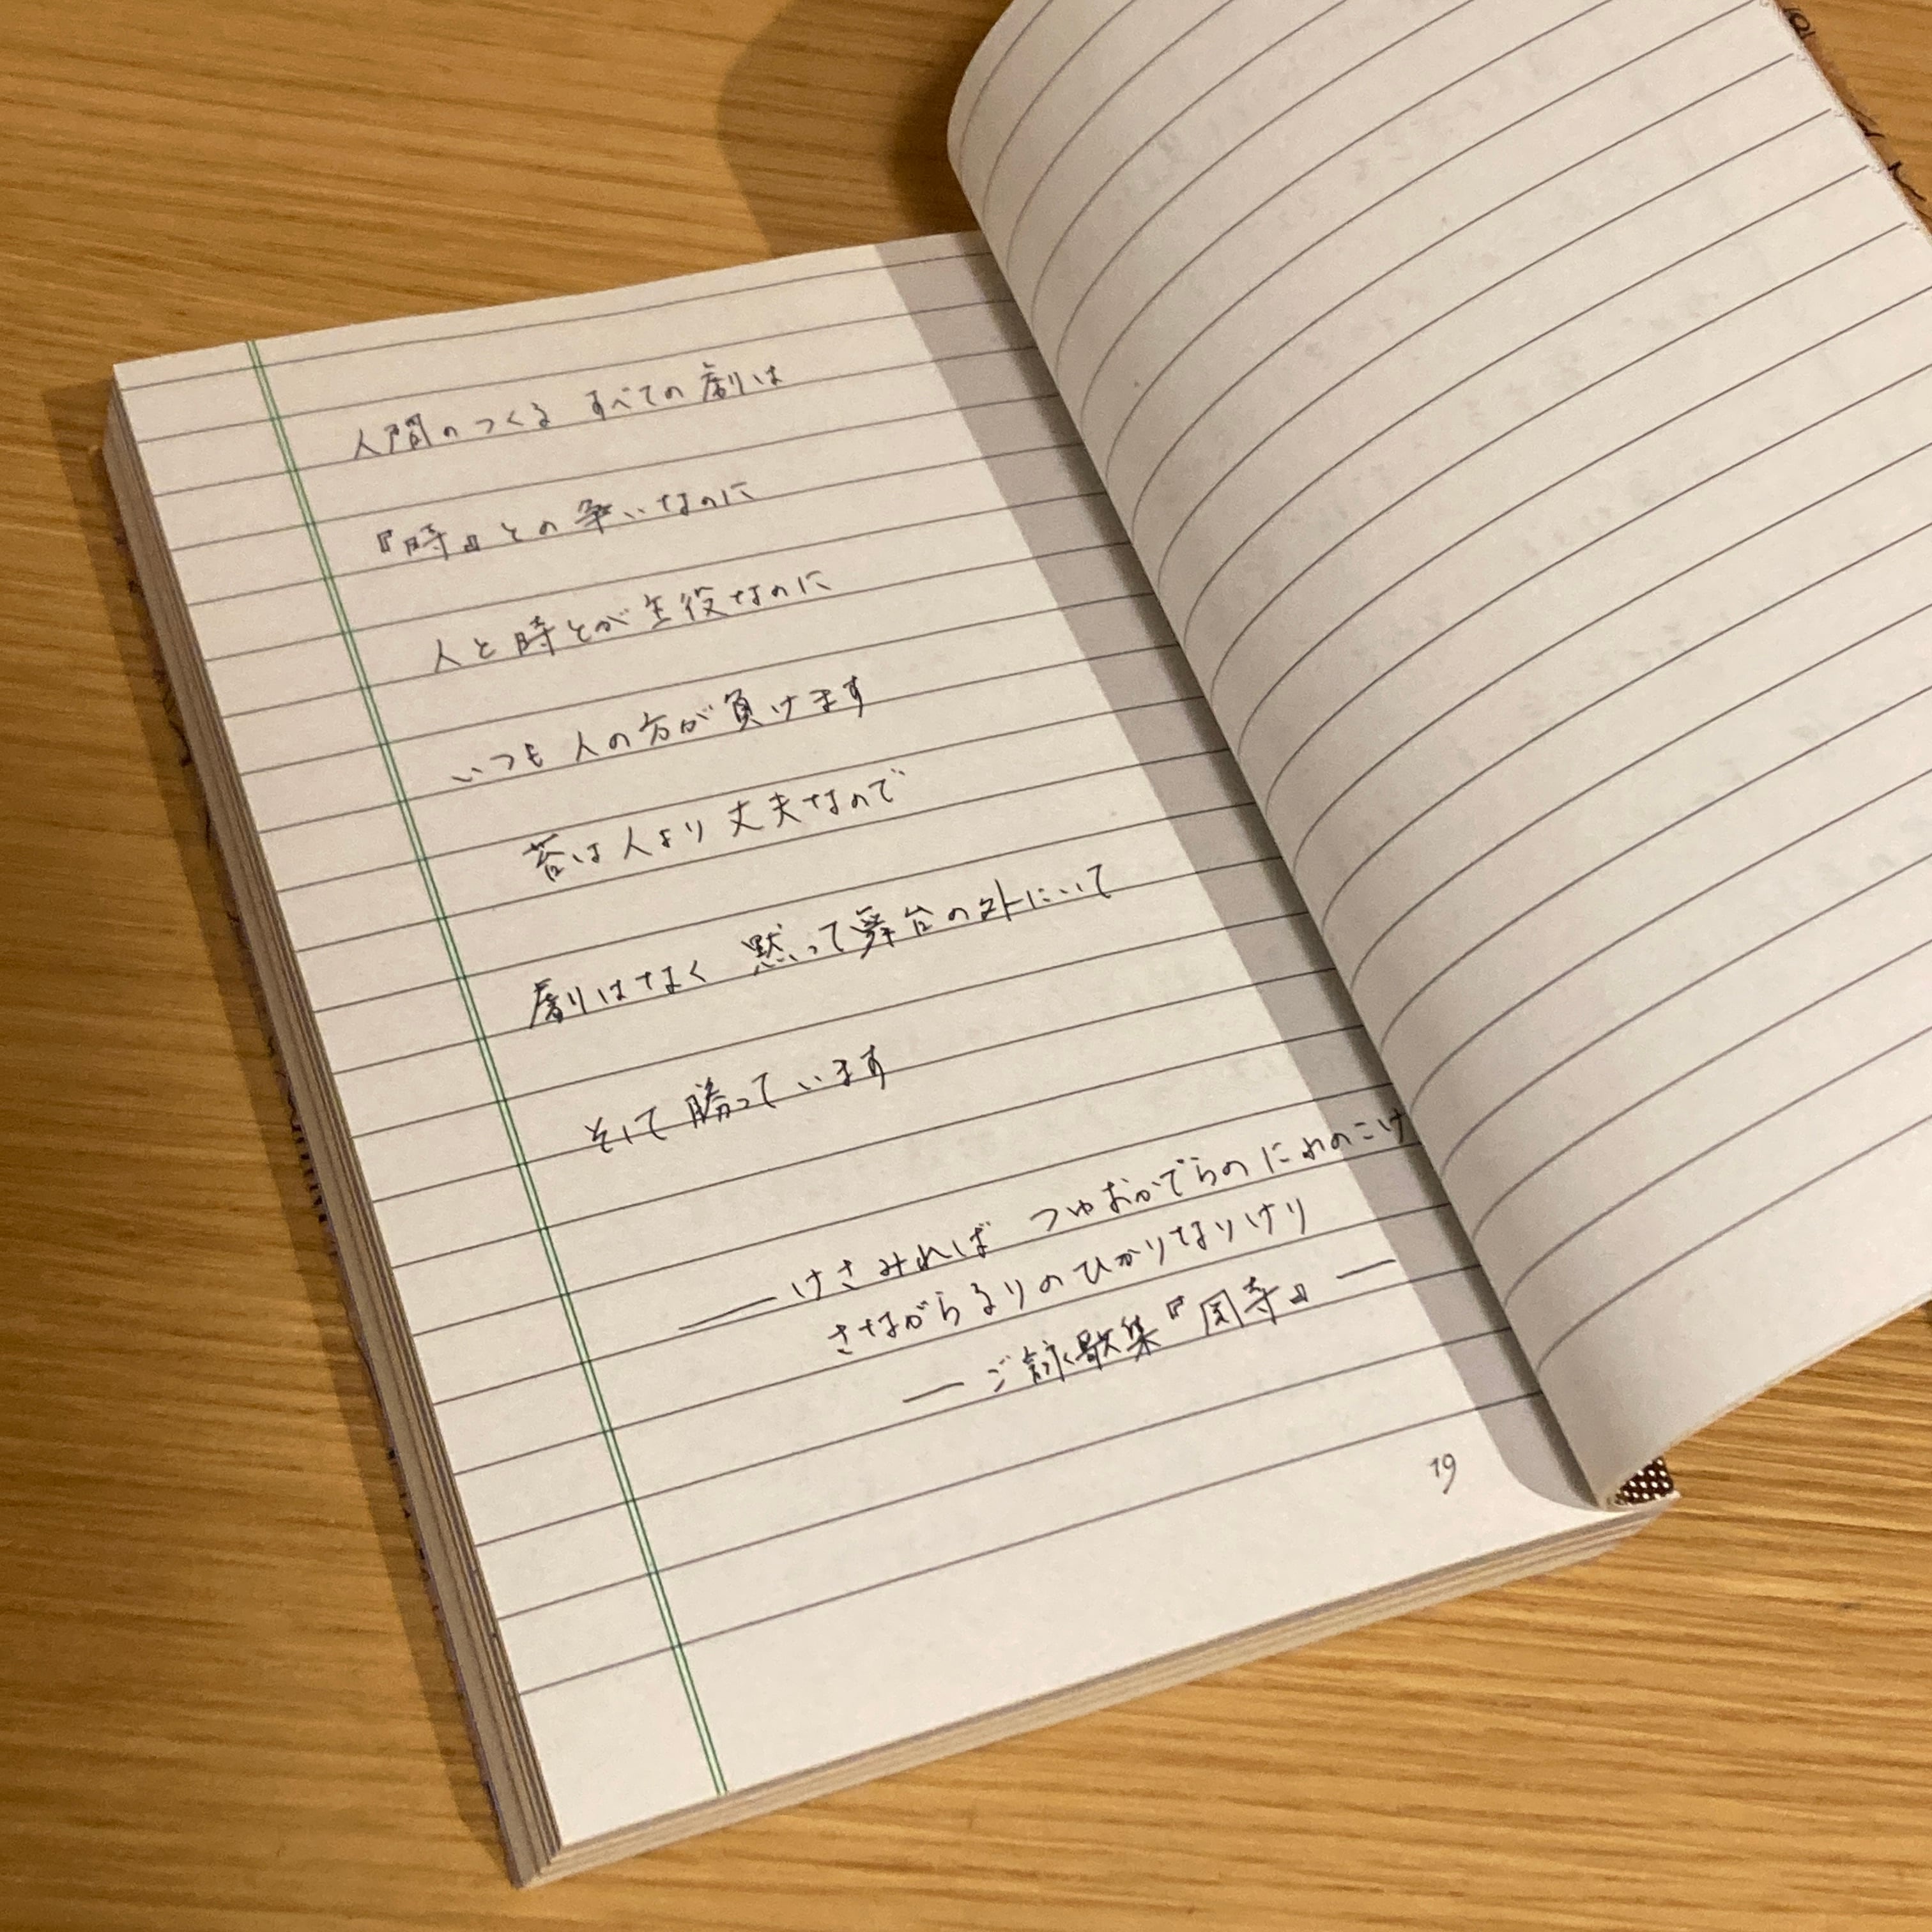 人間のつくる すべての劇は
『時』との争いなのに
人と時とが主役なのに
いつも 人の方が負けます
苔は人より丈夫なので
劇はなく 黙って舞台の外にいて
そして勝っています
― けさみれば つゆおかでらの にわのこけ
さながらるりのひかりなりけり
― ご詠歌集『岡寺』―
19